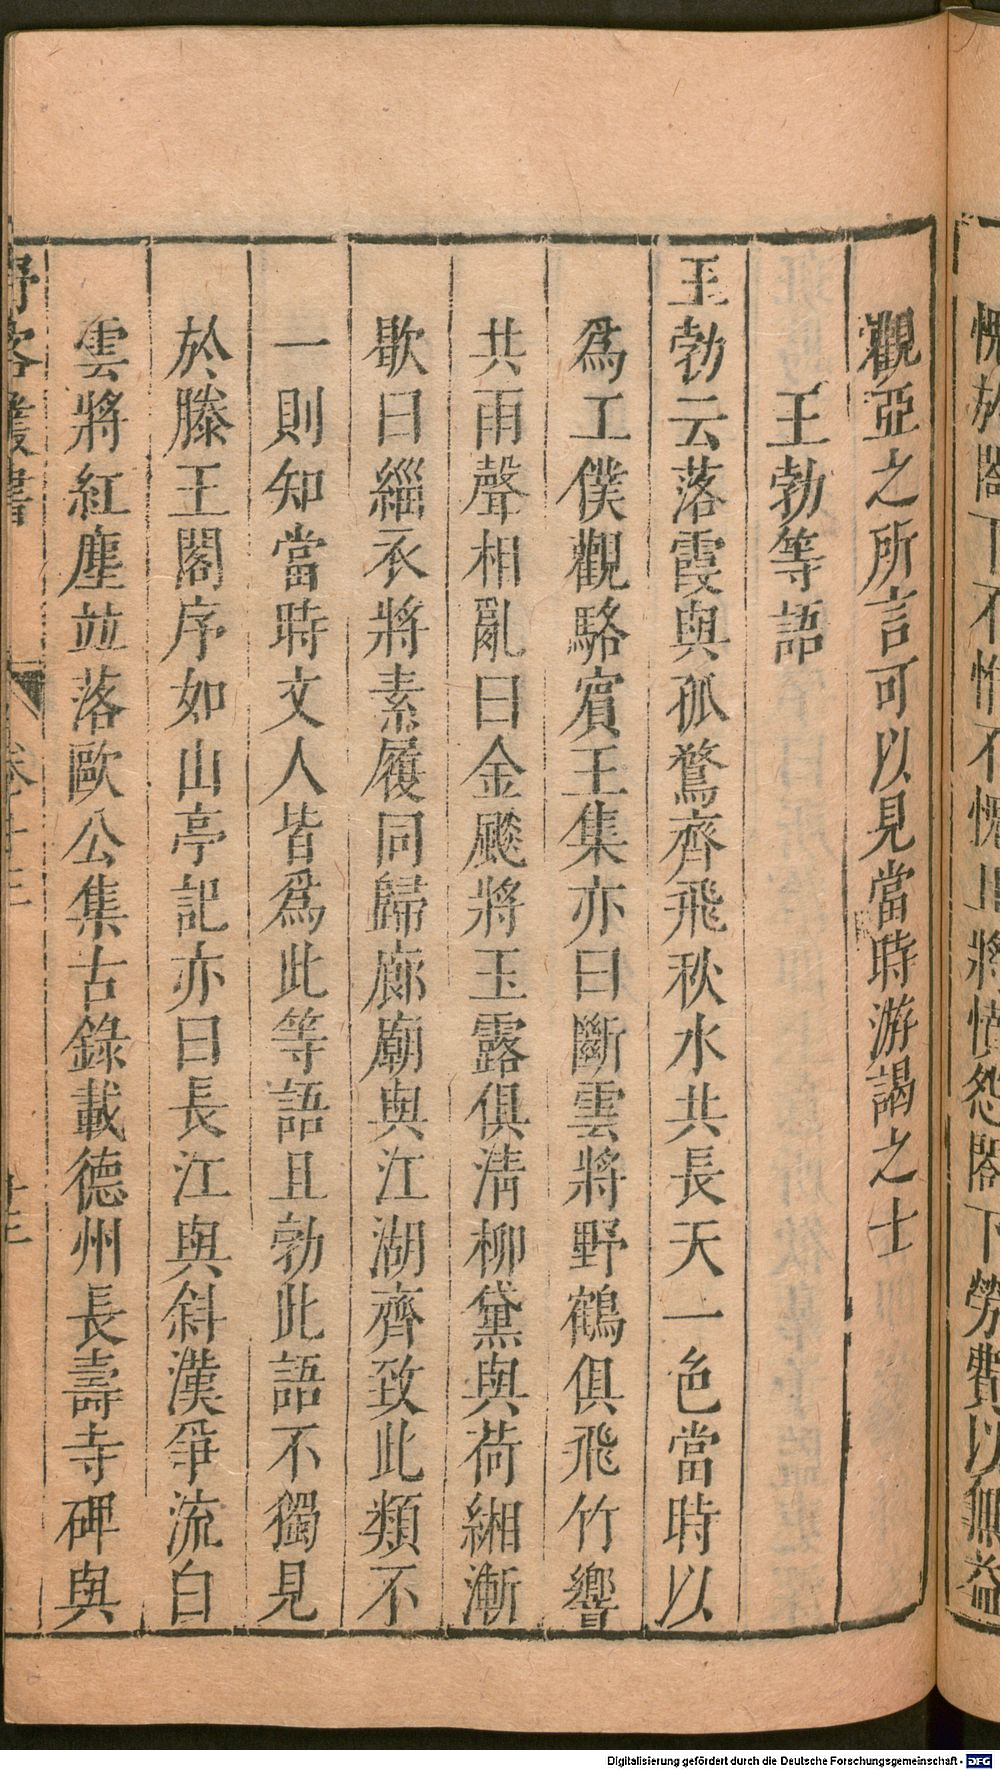 愧於閣下不惟不愧且將憤怨閣下勞費以無益
觀亞之所言可以見當時游謁之士
王勃等語
王勃云落霞與孤鶩齊飛秋水共長天一色當時以
爲工僕觀駱賓王集亦曰斷雲將野鶴俱飛竹響
共雨聲相亂曰金颷將玉露俱淸柳黛與荷緗漸
歇曰緇衣將素履同歸廊廟與江湖齊致此類不
一則知當時文人皆爲此等語且勃此語不獨見
於滕王閣序如山亭記亦曰長江與斜漢爭流白
雲將紅塵並落歐公集古錄載德州長壽寺碑與
野客叢書 卷十三
Digitalisierung gefördert durch die Deutsche Forschungsgemeinschaft - DFG